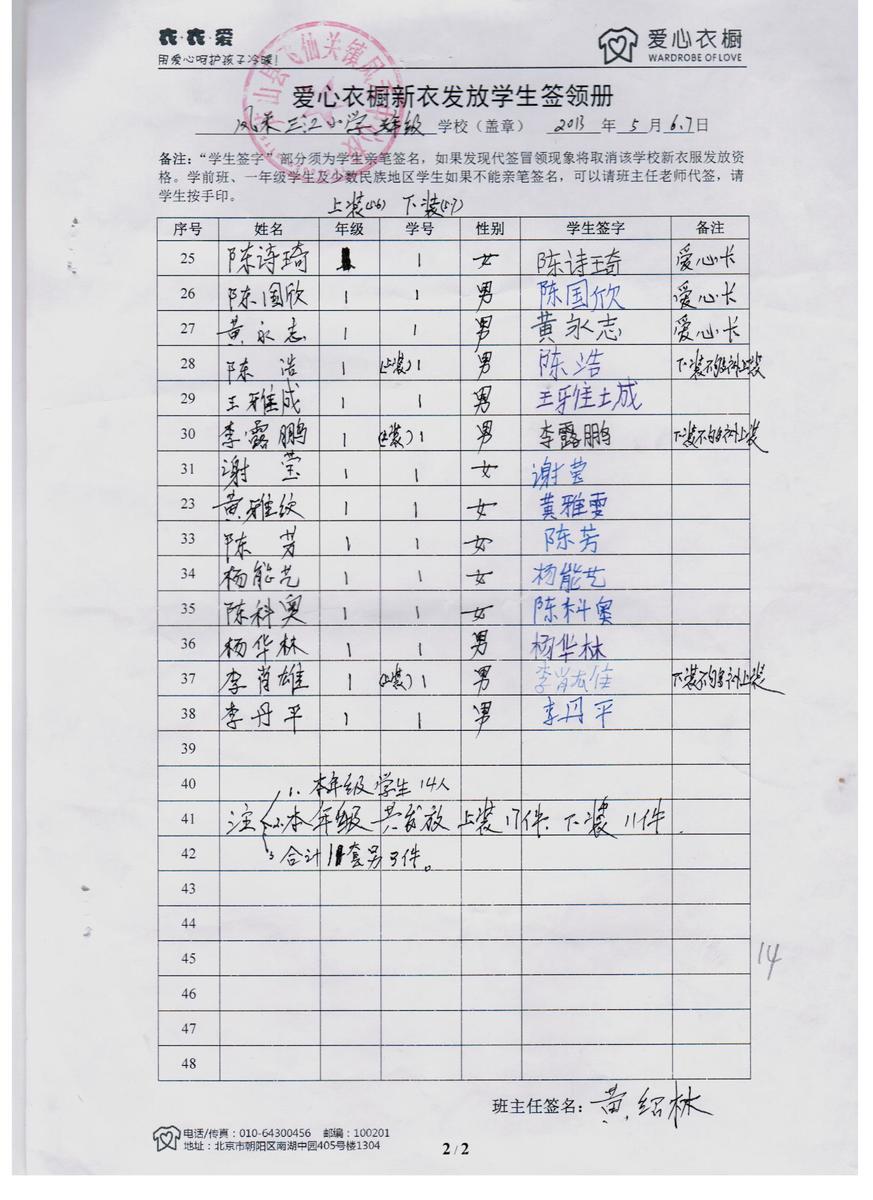 衣·衣·爱
用爱心呵护孩子冷暖！
爱心衣橱
WARDROBE OF LOVE
爱心衣橱新衣发放学生签领册
凤禾三江小学 年级 学校（盖章） 2013 年 5 月 6.7 日
备注：“学生签字”部分须为学生亲笔签名，如果发现代签冒领现象将取消该学校新衣服发放资
格。学前班、一年级学生及少数民族地区学生如果不能亲笔签名，可以请班主任老师代签，请
学生按手印。
上装(5.6) 下装(5.7)
序号 姓名 年级 学号 性别 学生签字 备注
25 陈诗琦 1 女 陈诗琦 爱心卡
26 陈国欣 1 1 男 陈国欣 爱心卡
27 黄永志 1 1 男 黄永志 爱心卡
28 陈浩 1 (上装)1 男 陈浩 下装不够补上装
29 王雅成 1 1 男 王雅成
30 李露鹏 1 (上装)1 男 李露鹏 下装不够补上装
31 谢莹 1 1 女 谢莹
23 黄雅纹 1 1 女 黄雅雯
33 陈芳 1 1 女 陈芳
34 杨能艺 1 1 女 杨能艺
35 陈科奥 1 1 女 陈科奥
36 杨华林 1 1 男 杨华林
37 李肖雄 1 (上装)1 男 李肖雄 下装不够补上装
38 李丹平 1 1 男 李丹平
39
40 1. 本年级学生14人
41 注 2. 本年级共发放上装17件、下装11件.
42 3 合计 套另3件。
43
44
45
14
46
47
48
班主任签名：黄绍林
电话/传真：010-64300456 邮编：100201
地址：北京市朝阳区南湖中园405号楼1304
2 / 2